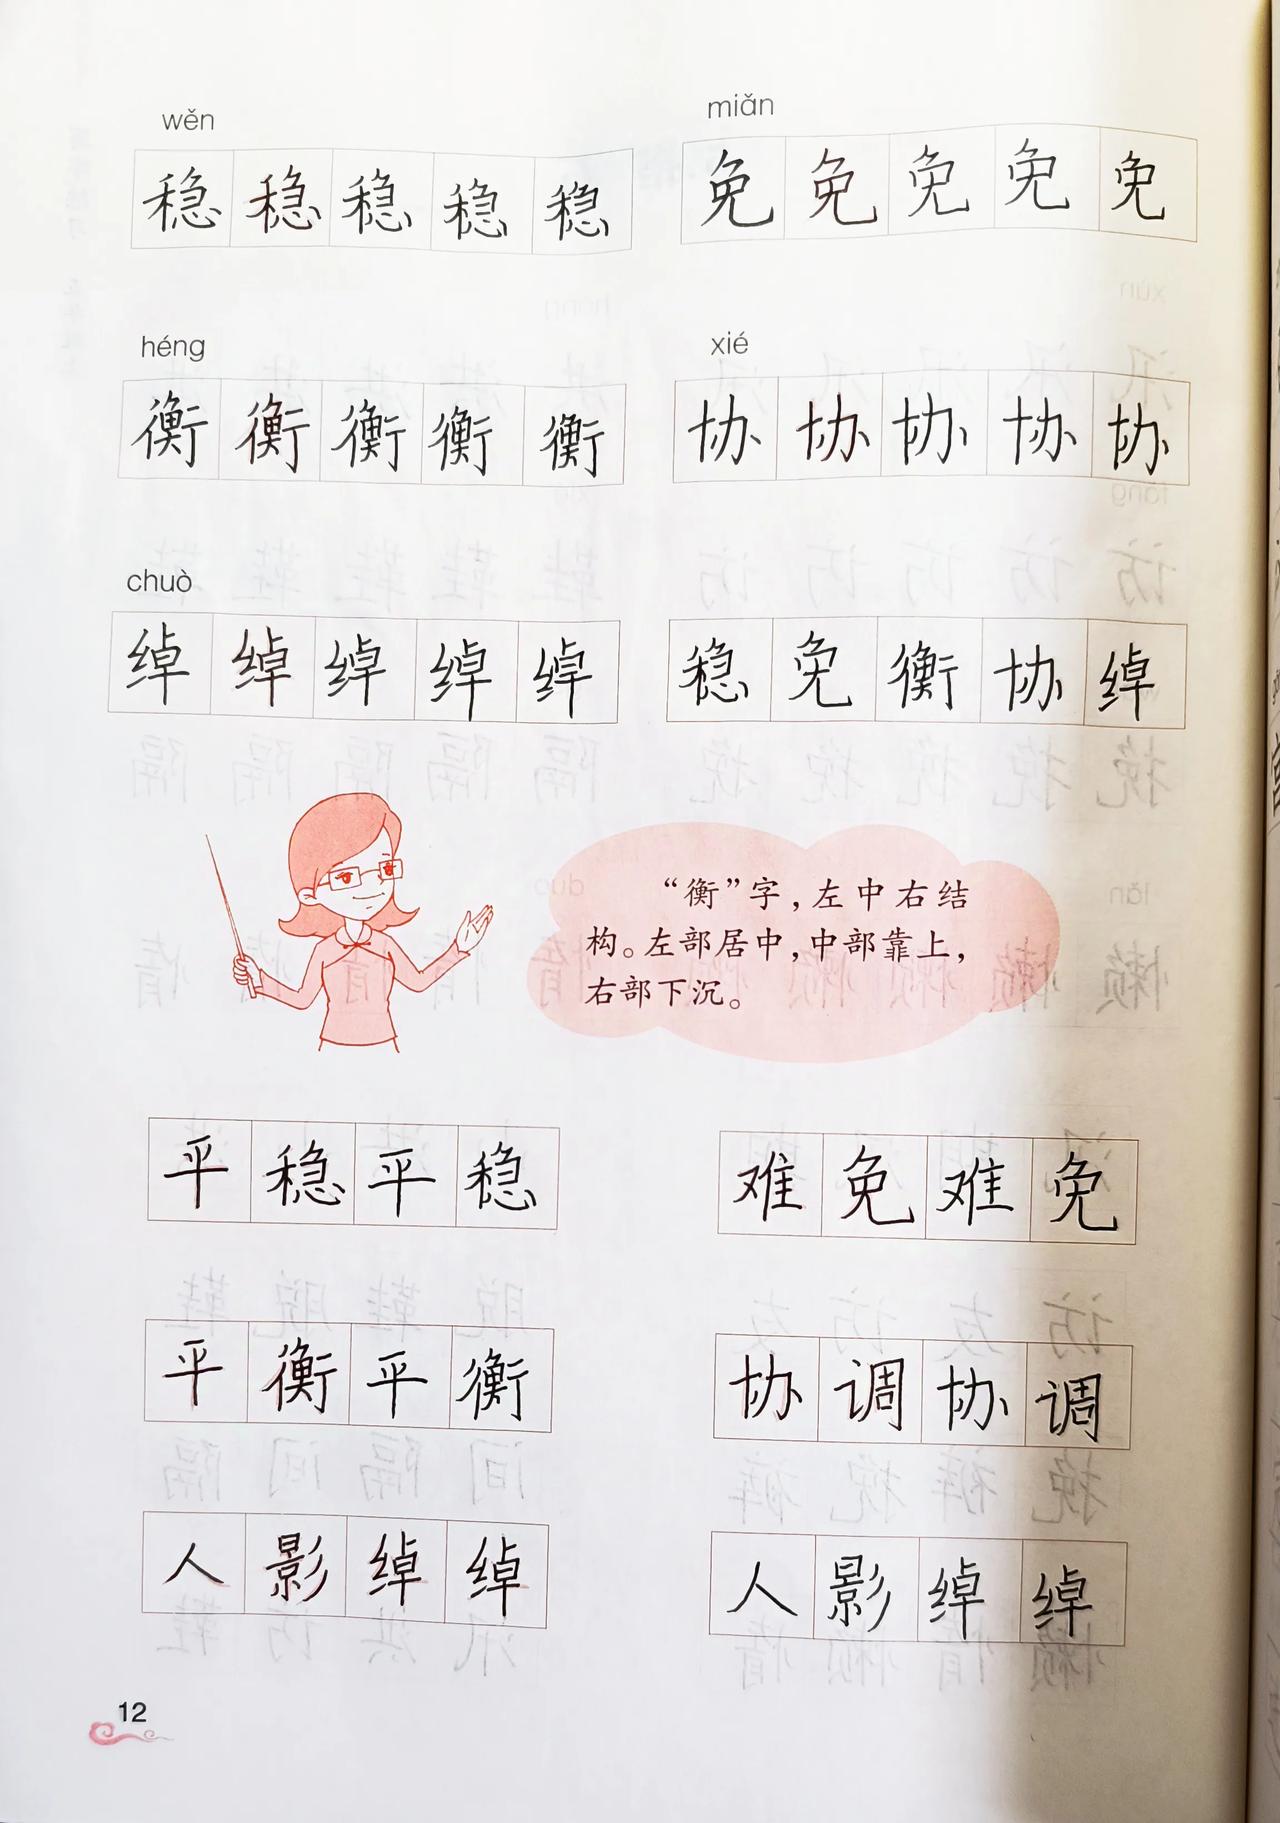 wěn miǎn
稳稳稳稳稳 免免免免免
héng xié
衡衡衡衡衡 协协协协协
chuò
绰绰绰绰绰 稳免衡协绰
“衡”字，左中右结
构。左部居中，中部靠上，
右部下沉。
平稳平稳 难免难免
平衡平衡 协调协调
人影绰绰 人影绰绰
12